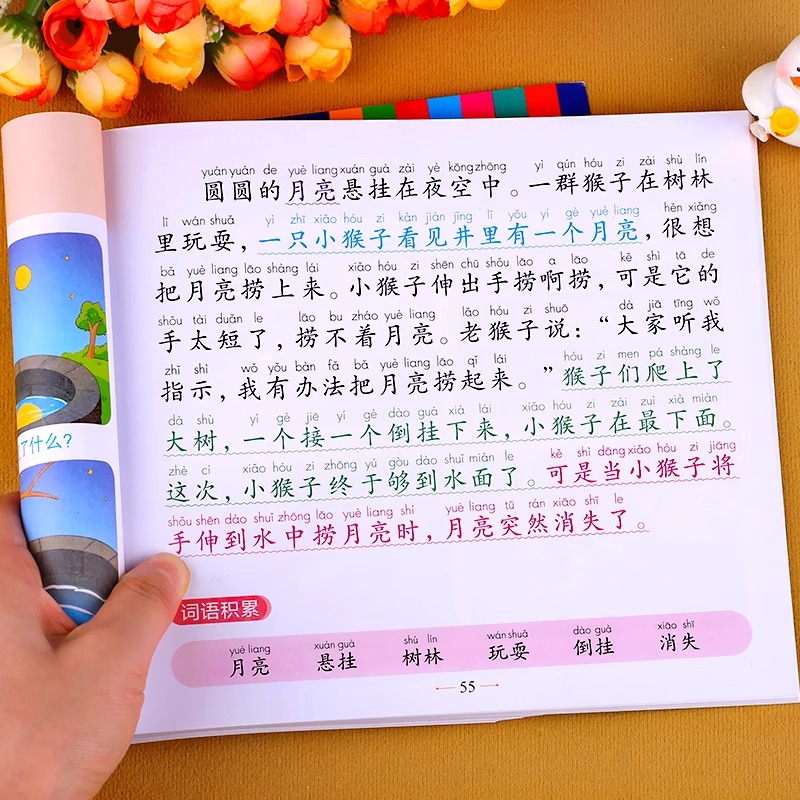 yuán yuán de yuè liang xuán guà zài yè kōng zhōng yì qún hóu zi zài shù lín
圆圆的月亮悬挂在夜空中。一群猴子在树林
lǐ wán shuǎ yì zhī xiǎo hóu zi kàn jiàn jǐng lǐ yǒu yí gè yuè liang hěn xiǎng
里玩耍，一只小猴子看见井里有一个月亮，很想
bǎ yuè liang lāo shàng lái xiǎo hóu zi shēn chū shǒu lāo a lāo kě shì tā de
把月亮捞上来。小猴子伸出手捞啊捞，可是它的
shǒu tài duǎn le lāo bu zháo yuè liang lǎo hóu zi shuō dà jiā tīng wǒ
手太短了，捞不着月亮。老猴子说：“大家听我
zhǐ shì wǒ yǒu bàn fǎ bǎ yuè liang lāo qǐ lái hóu zi men pá shàng le
指示，我有办法把月亮捞起来。”猴子们爬上了
dà shù yí gè jiē yí gè dào guà xià lái xiǎo hóu zi zài zuì xià miàn
大树，一个接一个倒挂下来，小猴子在最下面。
zhè cì xiǎo hóu zi zhōng yú gòu dào shuǐ miàn le kě shì dāng xiǎo hóu zi jiāng
这次，小猴子终于够到水面了。可是当小猴子将
shǒu shēn dào shuǐ zhōng lāo yuè liang shí yuè liang tū rán xiāo shī le
手伸到水中捞月亮时，月亮突然消失了。
了什么？
词语积累
yuè liang xuán guà shù lín wán shuǎ dào guà xiāo shī
月亮 悬挂 树林 玩耍 倒挂 消失
55